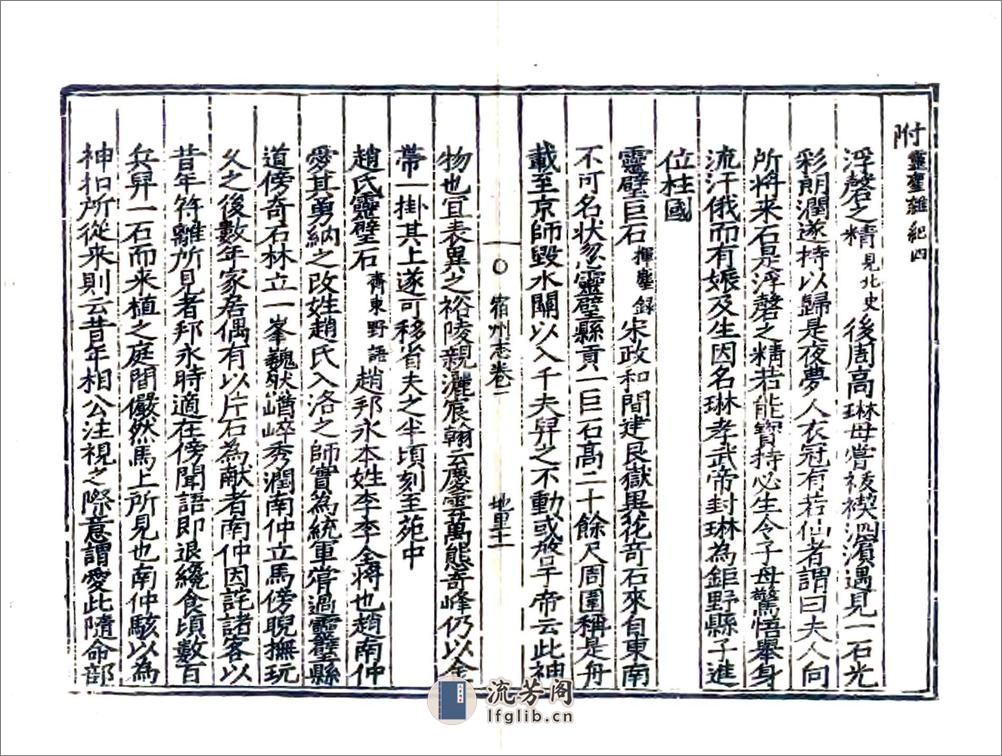 附靈壁雜紀四
浮磬之精見北史後周高琳母嘗祓禊泗濱遇見一石光
彩朗潤遂持以歸是夜夢人衣冠有若仙者謂曰夫人向
所將来石是浮磬之精若能寳持必生令子母驚悟舉身
流汗俄而有娠及生因名琳孝武帝封琳為鉅野縣子進
位柱國
靈壁巨石揮麈録宋政和間建艮嶽異花竒石來自東南
不可名状忽靈壁縣貢一巨石髙二十餘尺周圍稱是舟
載至京師毀水關以入千夫舁之不動或啓于帝云此神
宿州志卷一
地里十一
物也宜表異之裕陵親灑宸翰云慶雲萬態竒峰仍以金
帶一掛其上遂可移省夫之半頃刻至苑中
趙氏靈壁石齊東野語趙邦永本姓李李全将也趙南仲
愛其勇納之改姓趙氏入洛之師實為統軍嘗過靈壁縣
道傍奇石林立一峯巍然崷崪秀潤南仲立馬傍睨撫玩
久之後數年家居偶有以片石為献者南仲因詫諸客以
昔年符離所見者邦永時適在傍聞語即退纔食頃數百
兵舁一石而来植之庭間儼然馬上所見也南仲駭以為
神扣所從来則云昔年相公注視之際意謂愛此隨命部
流芳阁
lfglib.cn